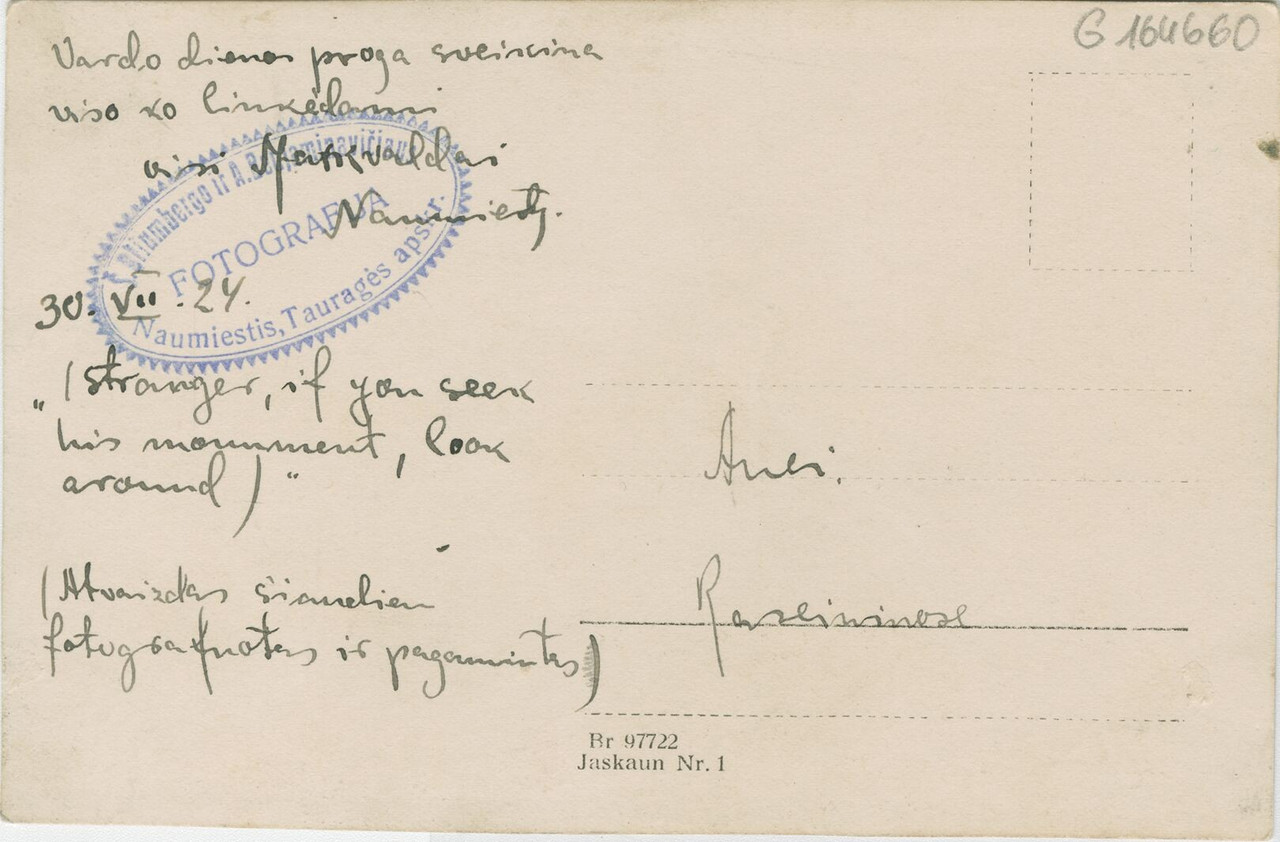 G 164660
Vardo dienos proga sveikina
viso ko linkėdami
visi
Naumiesty.
ir A. Beniaminavičiaus
FOTOGRAFIJA
Naumiestis, Tauragės apskr.
30. VII. 24.
„(stranger, if you seek
his monument, look
around)"
(Atvaizdas šiandien
fotografuotas ir pagamintas)
Anei.
Raseiniuose
Br 97722
Jaskaun Nr. 1